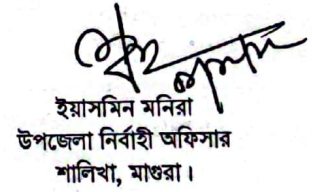 ইয়াসমিন মনিরা
উপজেলা নির্বাহী অফিসার
শালিখা, মাগুরা।